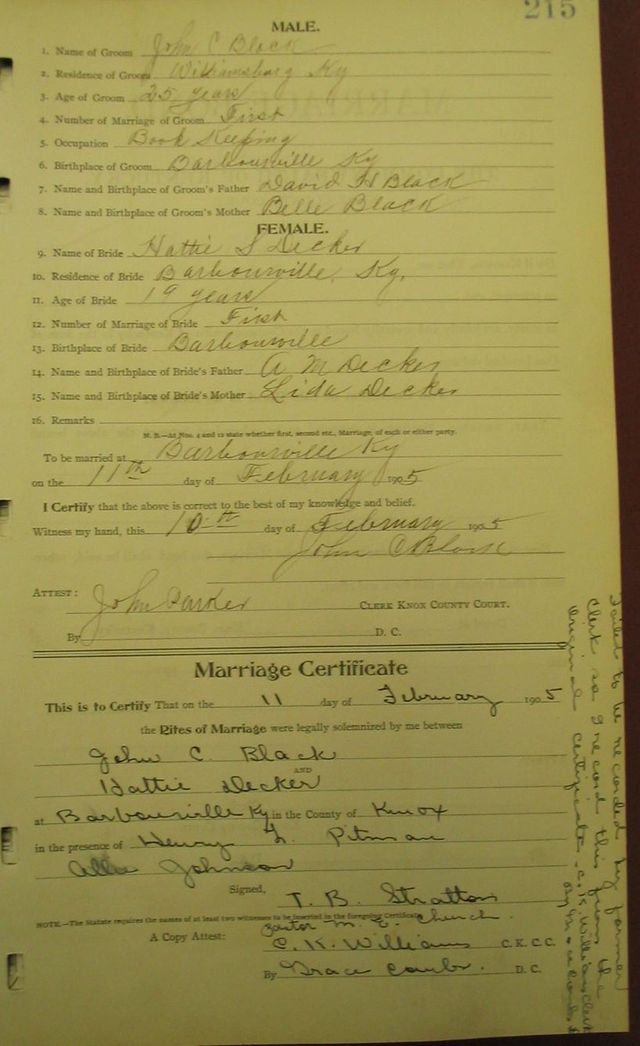 215
MALE.
1. Name of Groom John C Black
2. Residence of Groom Williamsburg Ky
3. Age of Groom 25 years
4. Number of Marriage of Groom First
5. Occupation Book Keeping
6. Birthplace of Groom Barbourville Ky
7. Name and Birthplace of Groom's Father David H Black
8. Name and Birthplace of Groom's Mother Belle Black
FEMALE.
9. Name of Bride Hattie S Decker
10. Residence of Bride Barbourville, Ky,
11. Age of Bride 19 years
12. Number of Marriage of Bride First
13. Birthplace of Bride Barbourville
14. Name and Birthplace of Bride's Father A M Decker
15. Name and Birthplace of Bride's Mother Lida Decker
16. Remarks
N. B.—At Nos. 4 and 12 state whether first, second etc., Marriage, of each or either party.
To be married at Barbourville Ky
on the 11th day of February 1905
I Certify that the above is correct to the best of my knowledge and belief.
Witness my hand, this 10th day of February 1905
John C Black
ATTEST: John Parker CLERK KNOX COUNTY COURT.
By D. C.
Marriage Certificate
This is to Certify That on the 11 day of February 1905
the Rites of Marriage were legally solemnized by me between
John C. Black
AND
Hattie Decker
at Barbourville Ky in the County of Knox
in the presence of Henry L. Pitman
Allie Johnson
Signed, T. B. Stratton
NOTE.—The Statute requires the names of at least two witnesses to be inserted in the foregoing Certificate.
Pastor M. E. Church.
A Copy Attest: C. K. Williams C. K. C. C.
By Grace D. C.
Failed to be recorded by former
Clerk so I record this from the
Original Certificate. C. K. Williams Clerk
By Grace